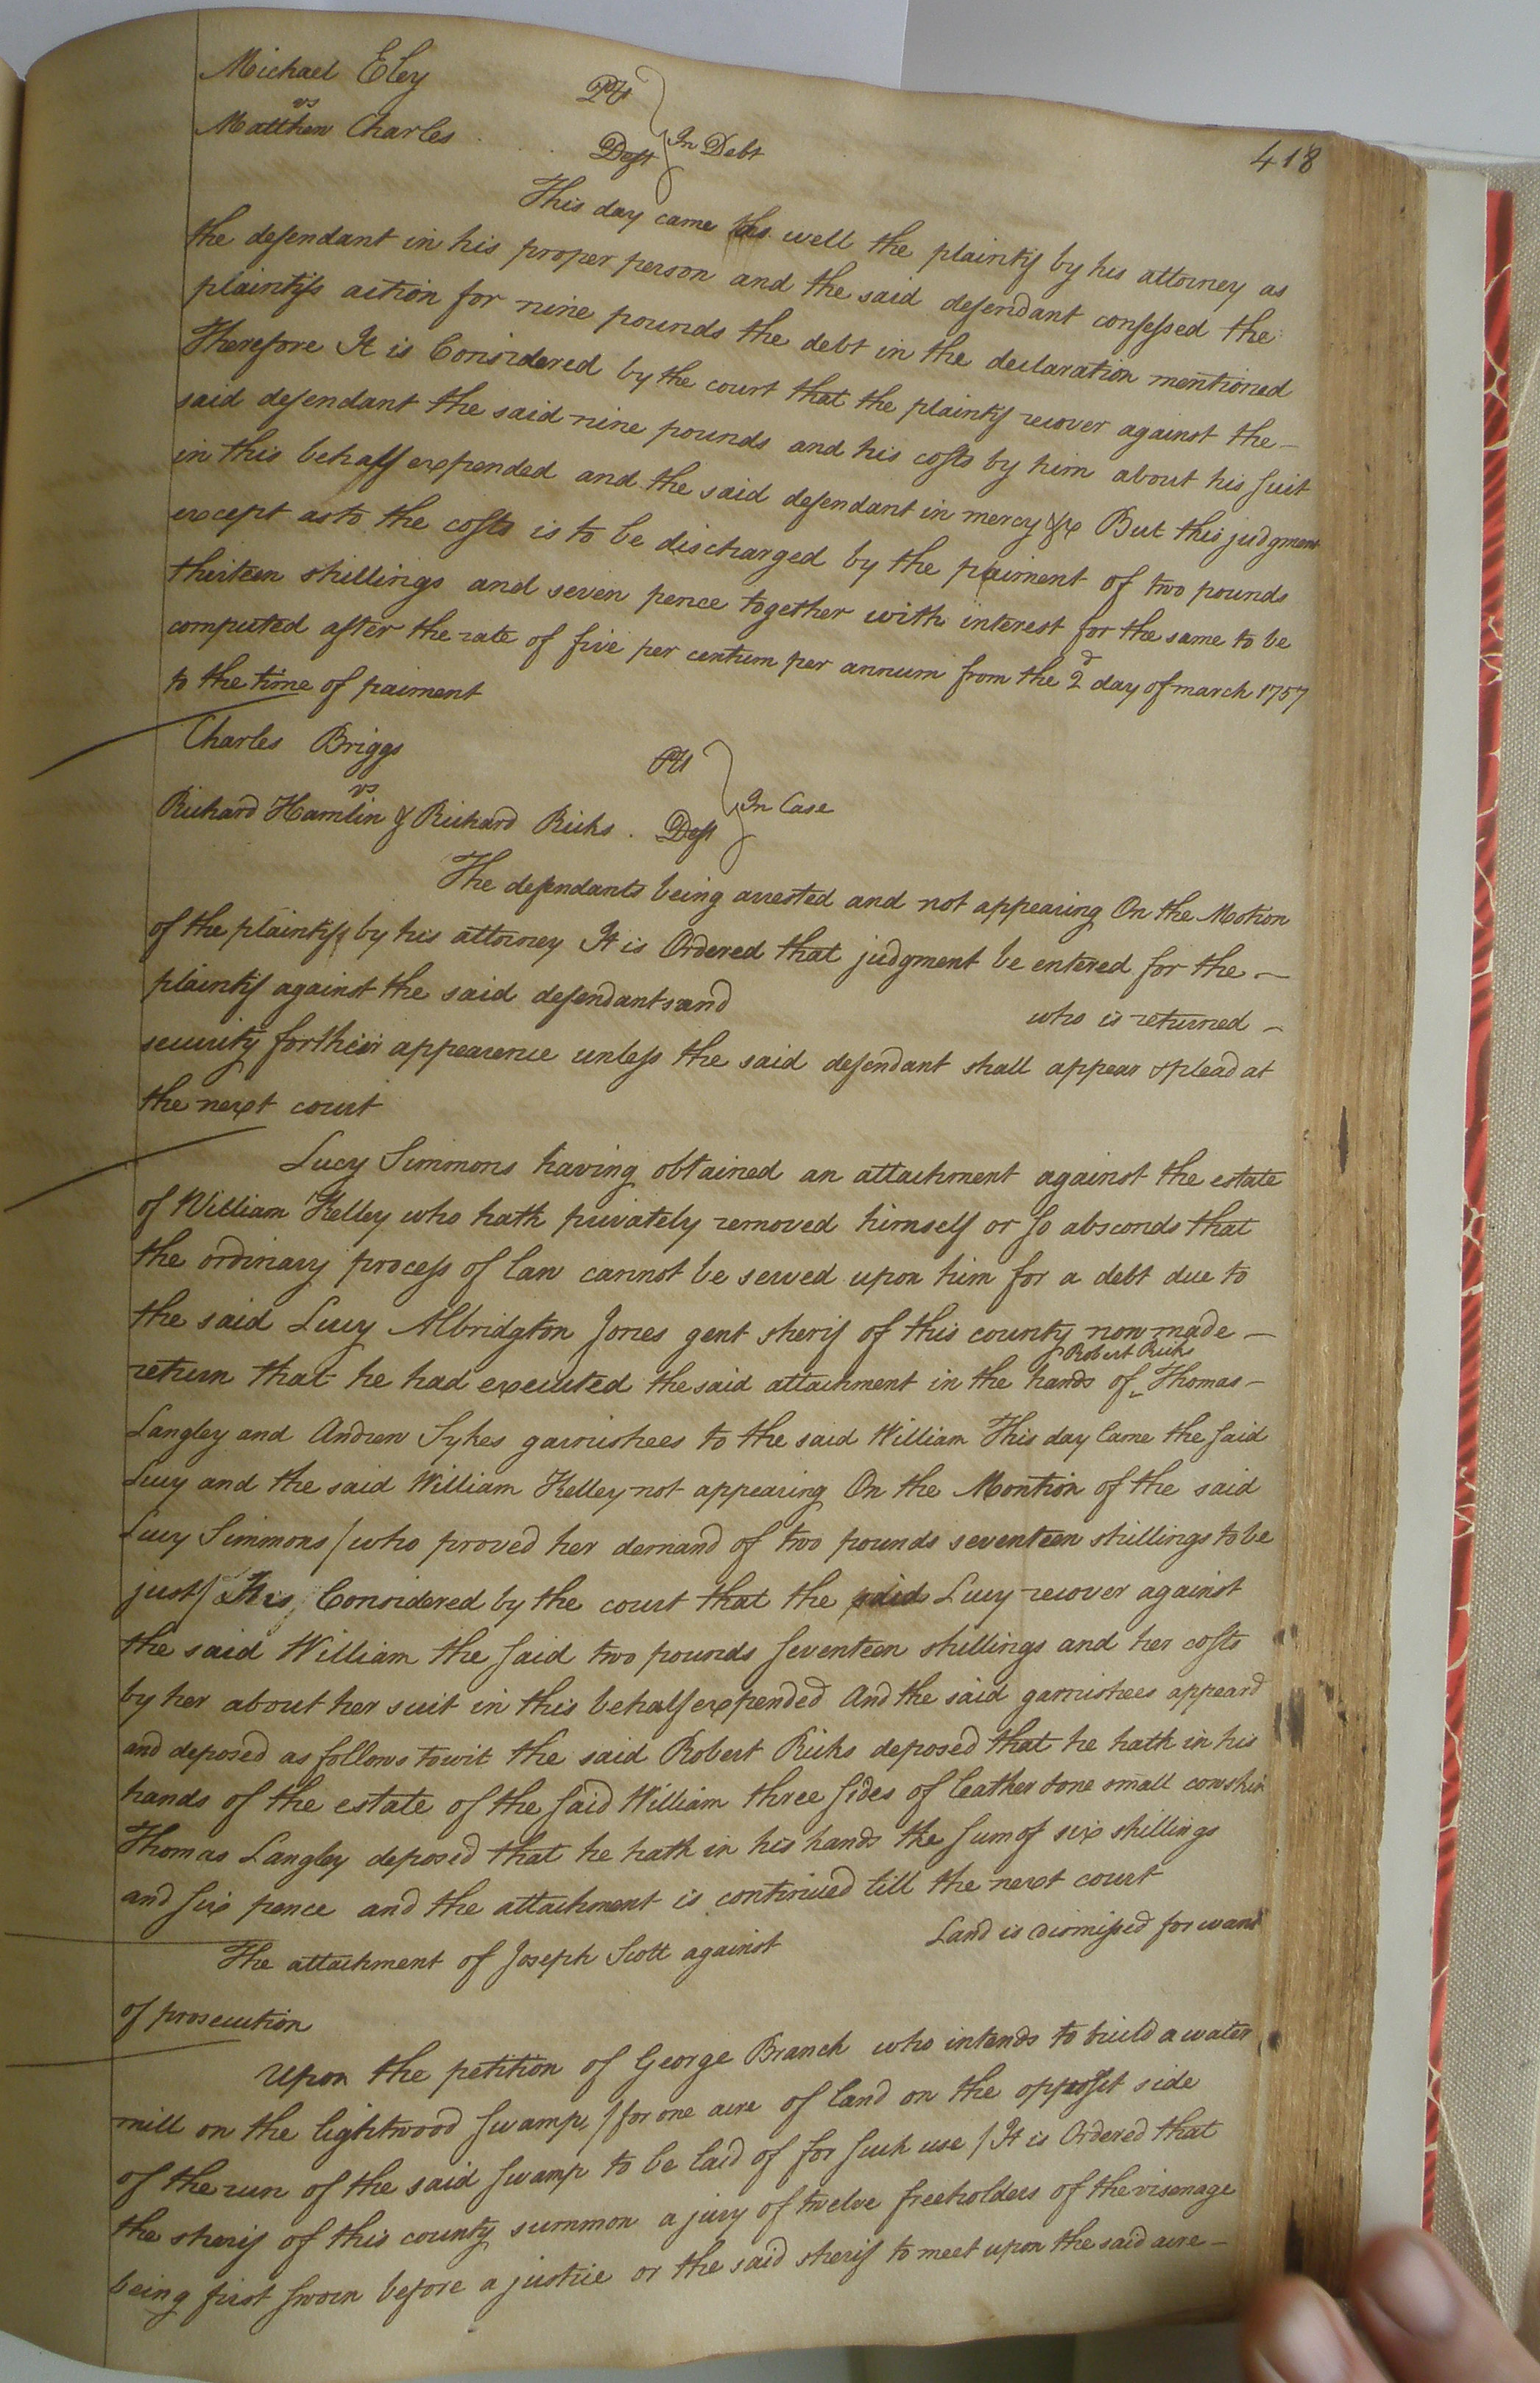 418
Michael Eley Plt
vs
Matthew Charles Deft In Debt
This day came as well the plaintif by his attorney as
the defendant in his proper person and the said defendant confessed the
plaintifs action for nine pounds the debt in the declaration mentioned
Therefore It is Considered by the court that the plaintif recover against the –
said defendant the said nine pounds and his costs by him about his suit
in this behalf expended and the said defendant in mercy &c But this judgment
except as to the costs is to be discharged by the paiment of two pounds
thirteen shillings and seven pence together with interest for the same to be
computed after the rate of five per centum per annum from the 2d day of march 1757
to the time of paiment
Charles Briggs Plt
vs
Richard Hamlin & Richard Ricks . Deft In Case
The defendants being arrested and not appearing On the Motion
of the plaintif by his attorney It is Ordered that judgment be entered for the –
plaintif against the said defendants and who is returned –
security for their appearence unless the said defendant shall appear & plead at
the next court
Lucy Simmons having obtained an attachment against the estate
of William Kelley who hath privately removed himself or so absconds that
the ordinary process of law cannot be served upon him for a debt due to
the said Lucy Albridgton Jones gent sherif of this county now made –
return that he had executed the said attachment in the hands of Robert Ricks Thomas –
Langley and Andrew Sykes garnishees to the said William This day Came the said
Lucy and the said William Kelley not appearing On the Montion of the said
Lucy Simmons / who proved her demand of two pounds seventeen shillings to be
just / It is Considered by the court that the said Lucy recover against
the said William the said two pounds seventeen shillings and her costs
by her about her suit in this behalf expended And the said garnishees appeard
and deposed as follows towit the said Robert Ricks deposed that he hath in his
hands of the estate of the said William three sides of leather & one small cowskin
Thomas Langley deposed that he hath in his hands the sum of six shillings
and six pence and the attachment is continued till the next court
The attachment of Joseph Scott against Land is dismissed for want
of prosecution
Upon the petition of George Branch who intends to build a water
mill on the lightwood swamp / for one acre of land on the opposit side
of the run of the said swamp to be laid of for such use / It is Ordered that
the sherif of this county summon a jury of twelve freeholders of the visenage
being first sworn before a justice or the said sherif to meet upon the said acre –